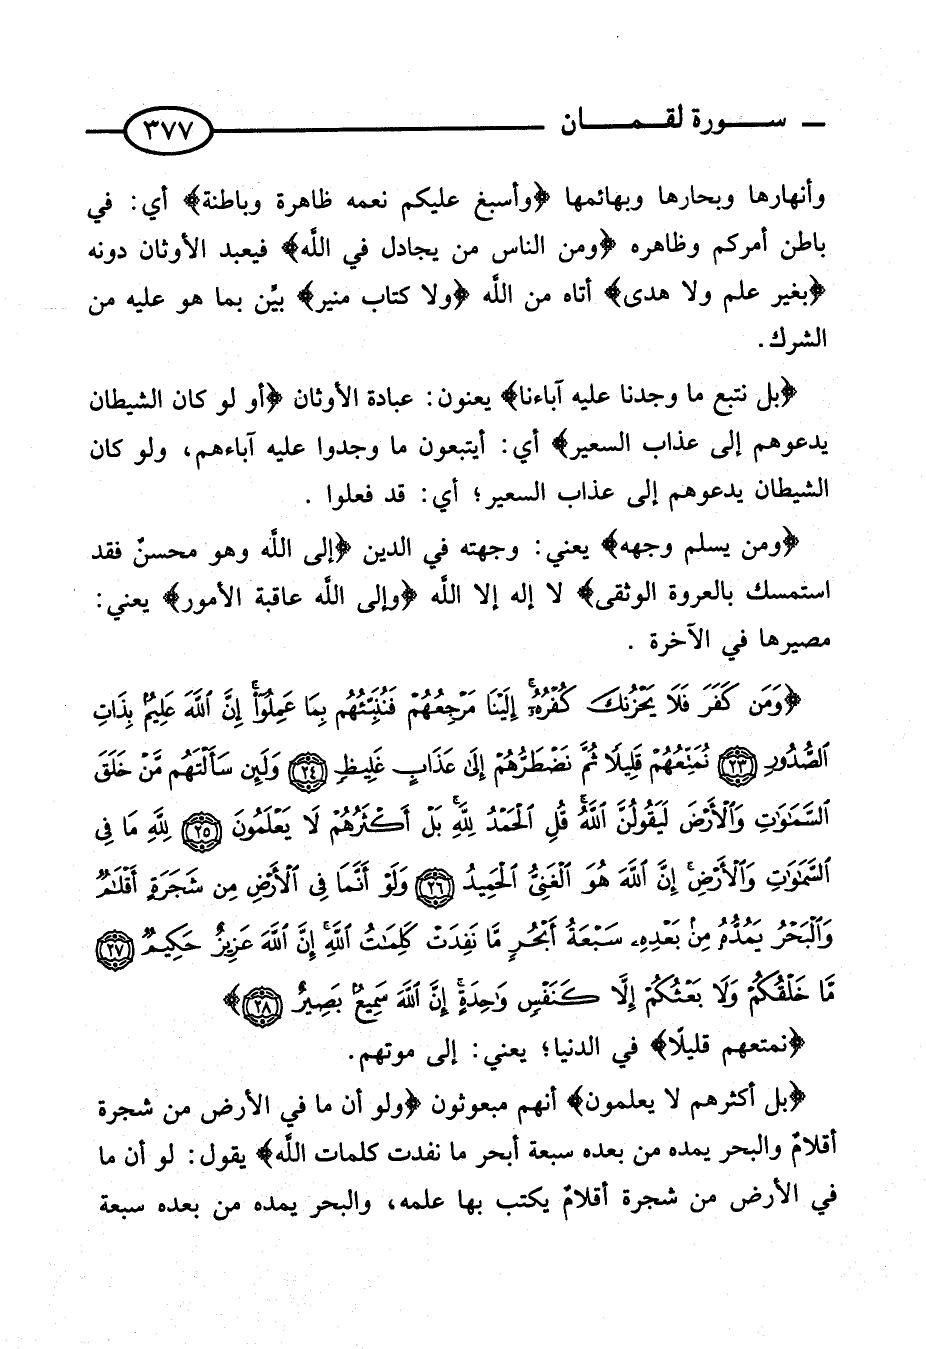 سورة لقمان ٣٧٧
وأنهارها وبحارها وبهائمها ﴿وأسبغ عليكم نعمه ظاهرة وباطنة﴾ أي: في
باطن أمركم وظاهره ﴿ومن الناس من يجادل في اللَّه﴾ فيعبد الأوثان دونه
﴿بغير علم ولا هدى﴾ أتاه من اللَّه ﴿ولا كتاب منير﴾ بيِّن بما هو عليه من
الشرك.
﴿بل نتبع ما وجدنا عليه آباءنا﴾ يعنون: عبادة الأوثان ﴿أو لو كان الشيطان
يدعوهم إلى عذاب السعير﴾ أي: أيتبعون ما وجدوا عليه آباءهم، ولو كان
الشيطان يدعوهم إلى عذاب السعير؛ أي: قد فعلوا .
﴿ومن يسلم وجهه﴾ يعني: وجهته في الدين ﴿إلى اللَّه وهو محسنٌ فقد
استمسك بالعروة الوثقى﴾ لا إله إلا اللَّه ﴿وإلى اللَّه عاقبة الأمور﴾ يعني:
مصيرها في الآخرة .
﴿وَمَن كَفَرَ فَلَا يَحْزُنكَ كُفْرُهُۥٓ ۚ إِلَيْنَا مَرْجِعُهُمْ فَنُنَبِّئُهُم بِمَا عَمِلُوٓا۟ ۚ إِنَّ ٱللَّهَ عَلِيمٌۢ بِذَاتِ
ٱلصُّدُورِ ٢٣ نُمَتِّعُهُمْ قَلِيلًا ثُمَّ نَضْطَرُّهُمْ إِلَىٰ عَذَابٍ غَلِيظٍ ٢٤ وَلَئِن سَأَلْتَهُم مَّنْ خَلَقَ
ٱلسَّمَـٰوَٰتِ وَٱلْأَرْضَ لَيَقُولُنَّ ٱللَّهُ ۚ قُلِ ٱلْحَمْدُ لِلَّهِ ۚ بَلْ أَكْثَرُهُمْ لَا يَعْلَمُونَ ٢٥ لِلَّهِ مَا فِى
ٱلسَّمَـٰوَٰتِ وَٱلْأَرْضِ ۚ إِنَّ ٱللَّهَ هُوَ ٱلْغَنِىُّ ٱلْحَمِيدُ ٢٦ وَلَوْ أَنَّمَا فِى ٱلْأَرْضِ مِن شَجَرَةٍ أَقْلَـٰمٌ
وَٱلْبَحْرُ يَمُدُّهُۥ مِنۢ بَعْدِهِۦ سَبْعَةُ أَبْحُرٍ مَّا نَفِدَتْ كَلِمَـٰتُ ٱللَّهِ ۗ إِنَّ ٱللَّهَ عَزِيزٌ حَكِيمٌ ٢٧
مَّا خَلْقُكُمْ وَلَا بَعْثُكُمْ إِلَّا كَنَفْسٍ وَٰحِدَةٍ ۗ إِنَّ ٱللَّهَ سَمِيعٌۢ بَصِيرٌ ٢٨﴾
﴿نمتعهم قليلًا﴾ في الدنيا؛ يعني: إلى موتهم.
﴿بل أكثرهم لا يعلمون﴾ أنهم مبعوثون ﴿ولو أن ما في الأرض من شجرة
أقلامٌ والبحر يمده من بعده سبعة أبحر ما نفدت كلمات اللَّه﴾ يقول: لو أن ما
في الأرض من شجرة أقلامٌ يكتب بها علمه، والبحر يمده من بعده سبعة